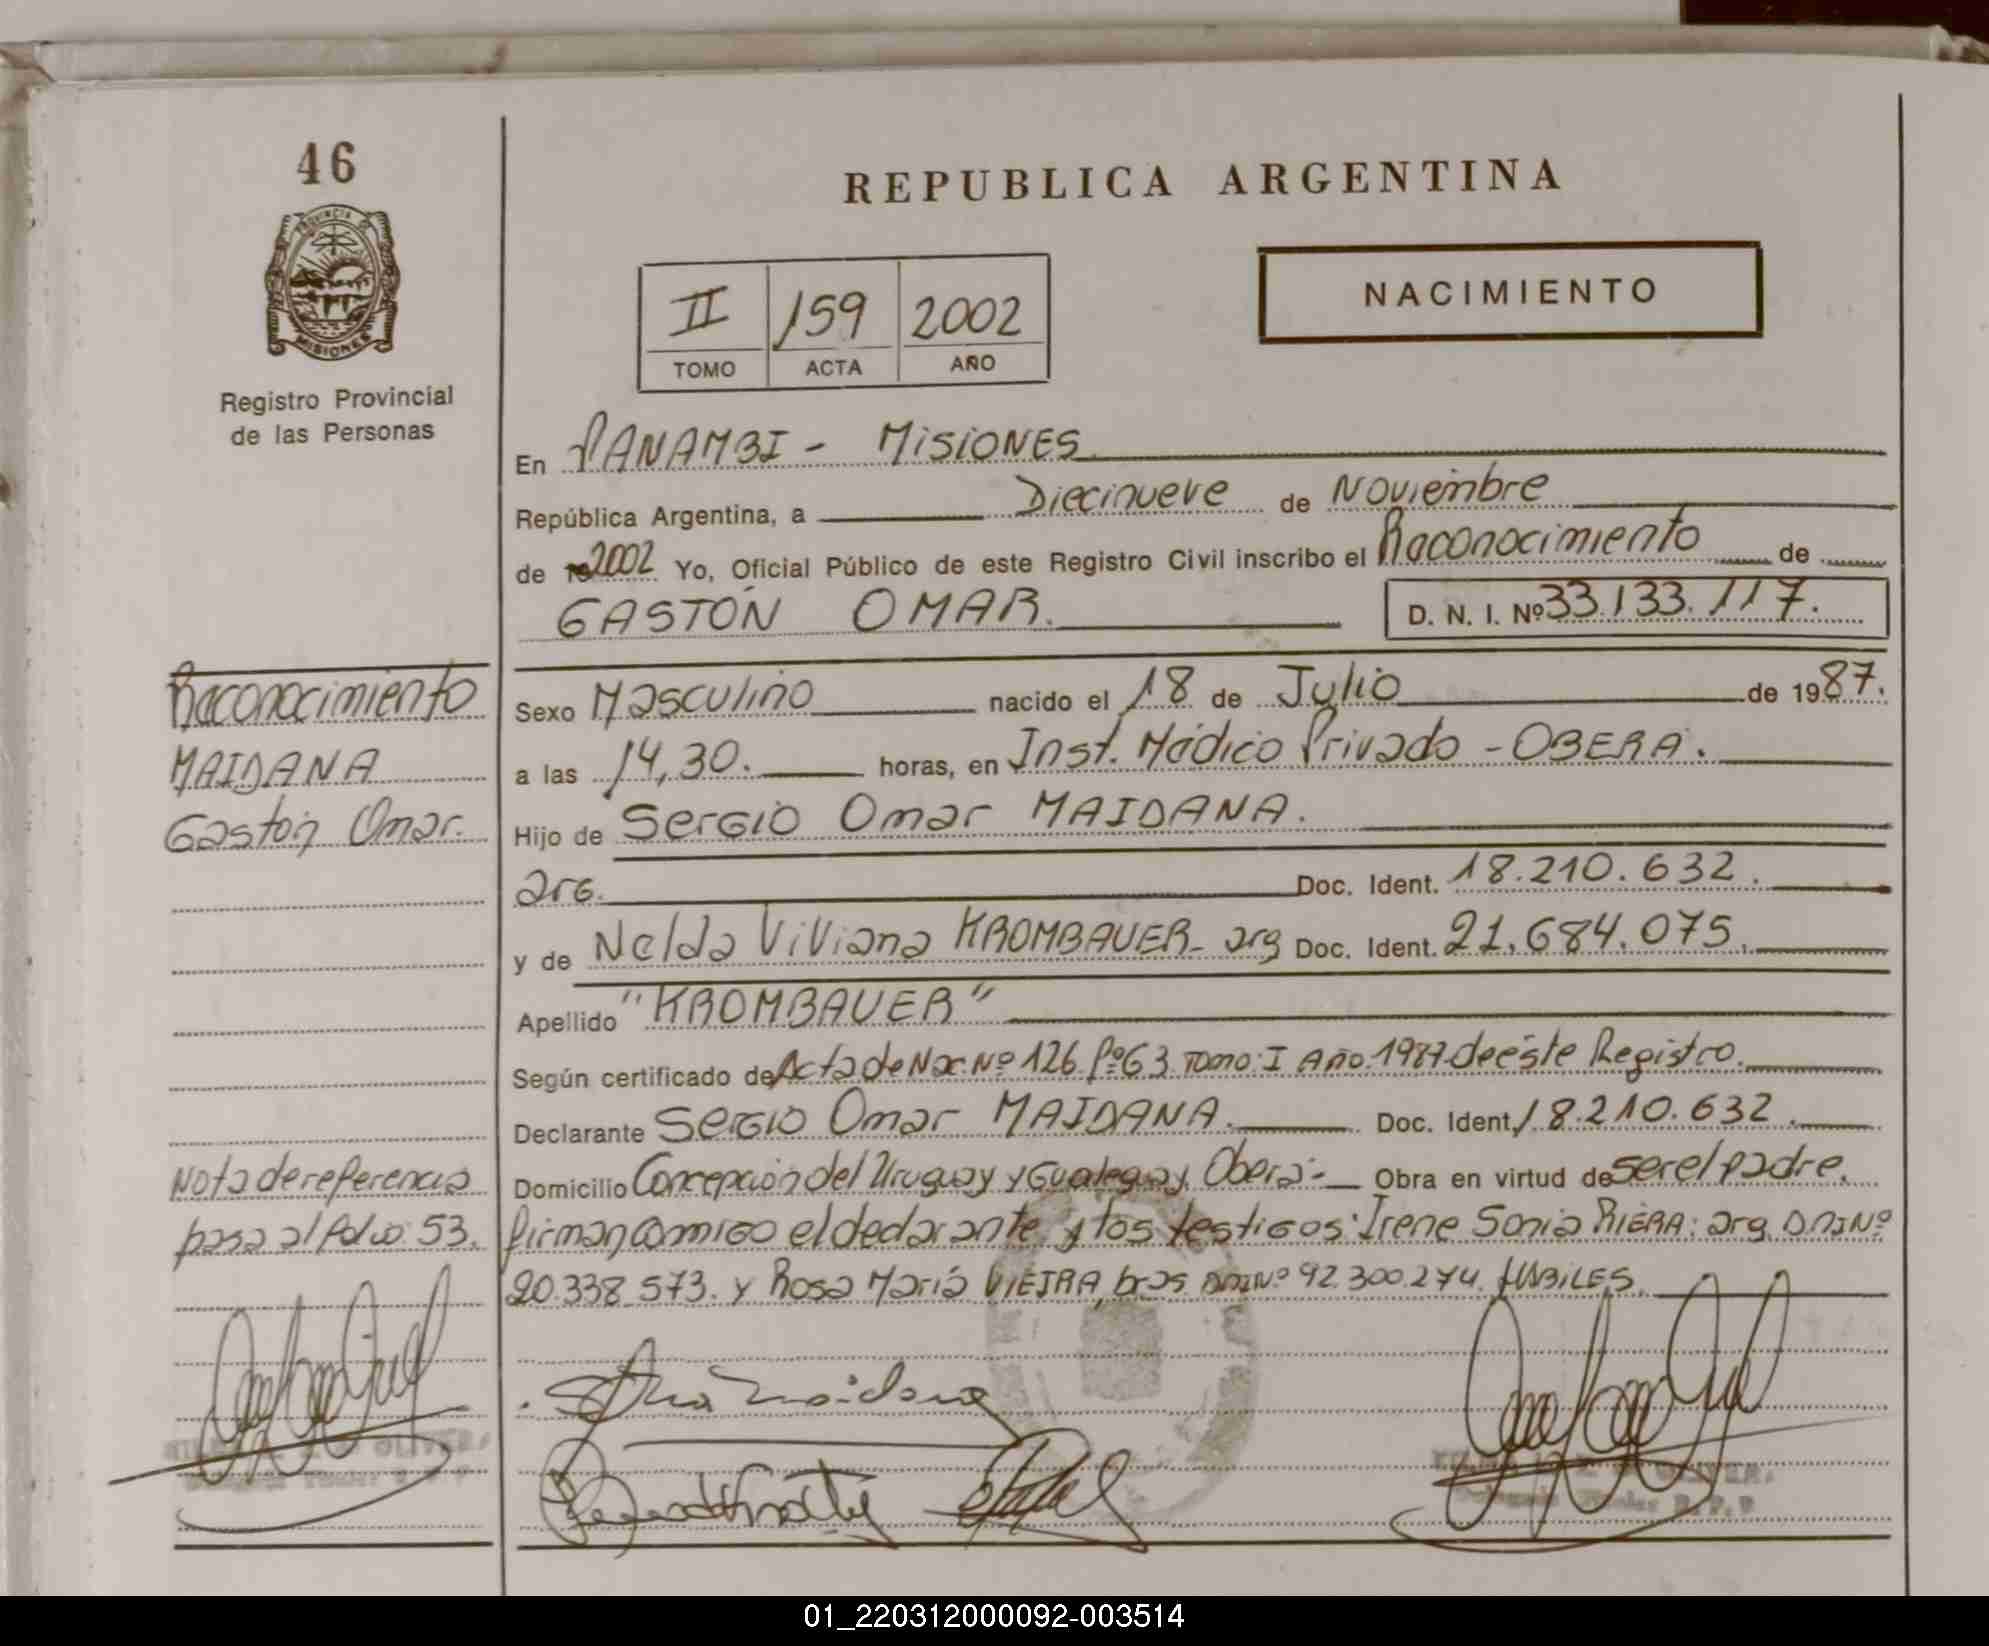 46
PROVINCIA
MISIONES
Registro Provincial
de las Personas
REPUBLICA ARGENTINA
II 159 2002
TOMO ACTA AÑO
NACIMIENTO
En PANAMBI - MISIONES
República Argentina, a Diecinueve de Noviembre
de 2002 Yo, Oficial Público de este Registro Civil inscribo el Reconocimiento de
GASTÓN OMAR. D. N. I. Nº 33.133.117.
Reconocimiento
MAIDANA
Gastón Omar.
Sexo Masculino nacido el 18 de Julio de 1987.
a las 14,30. horas, en Inst. Médico Privado - OBERA.
Hijo de Sergio Omar MAIDANA.
arg. Doc. Ident. 18.210.632.
y de Nelda Viviana KROMBAUER - arg Doc. Ident. 21.684.075.
Apellido "KROMBAUER"
Según certificado de Acta de Nac. Nº 126 Fº 63 Tomo: I Año 1987 de éste Registro.
Declarante Sergio Omar MAIDANA. Doc. Ident. 18.210.632.
Domicilio Concepción del Uruguay y Gualeguay Oberá - Obra en virtud de ser el padre.
firman conmigo el declarante y los testigos: Irene Sonia RIERA: arg. DNI Nº
20.338.573. y Rosa María VIEIRA, bras DNI Nº 92.300.274. HABILES.
Nota de referencia
pasa al folio 53.
01_220312000092-003514